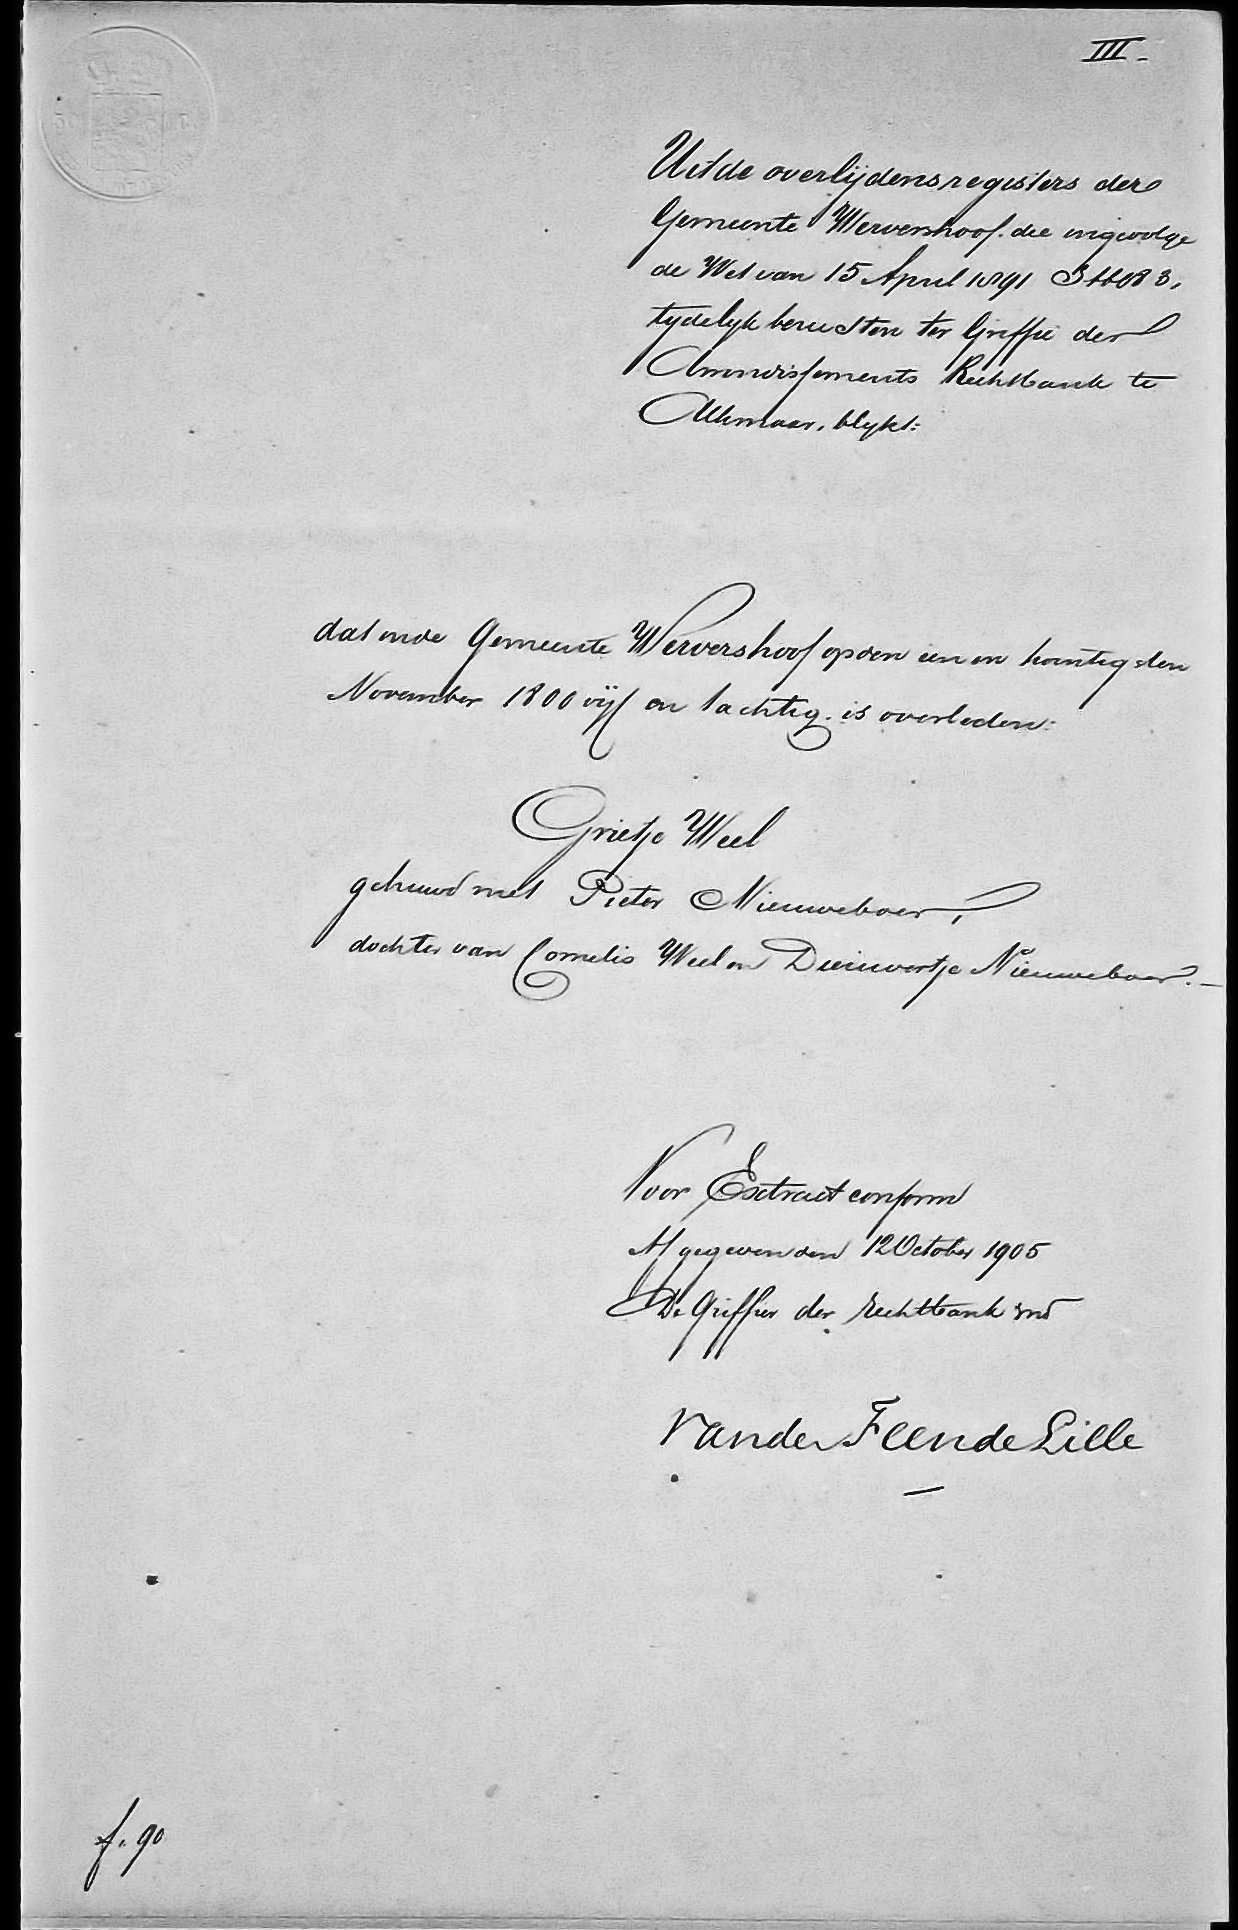 III.
Uit de overlijdensregisters der
Gemeente Wervershoof. die ingevolge
de Wet van 15 April 1891 Stbl 83,
tydelyk berusten ter Griffie der
Arrondissements Rechtbank te
Alkmaar, blykt:
dat in de Gemeente Wervershoof op den een en twintigsten
November 1800 vyf en tachtig. is overleden:
Grietje Weel
gehuwd met Pieter Nieuweboer,
dochter van Cornelis Weel en Dieuwertje Nieuweboer.
Voor Extract conform
Afgegeven den 12 October 1905
De Griffier der rechtbank vnd
Van der Feen de Lille
f. 90